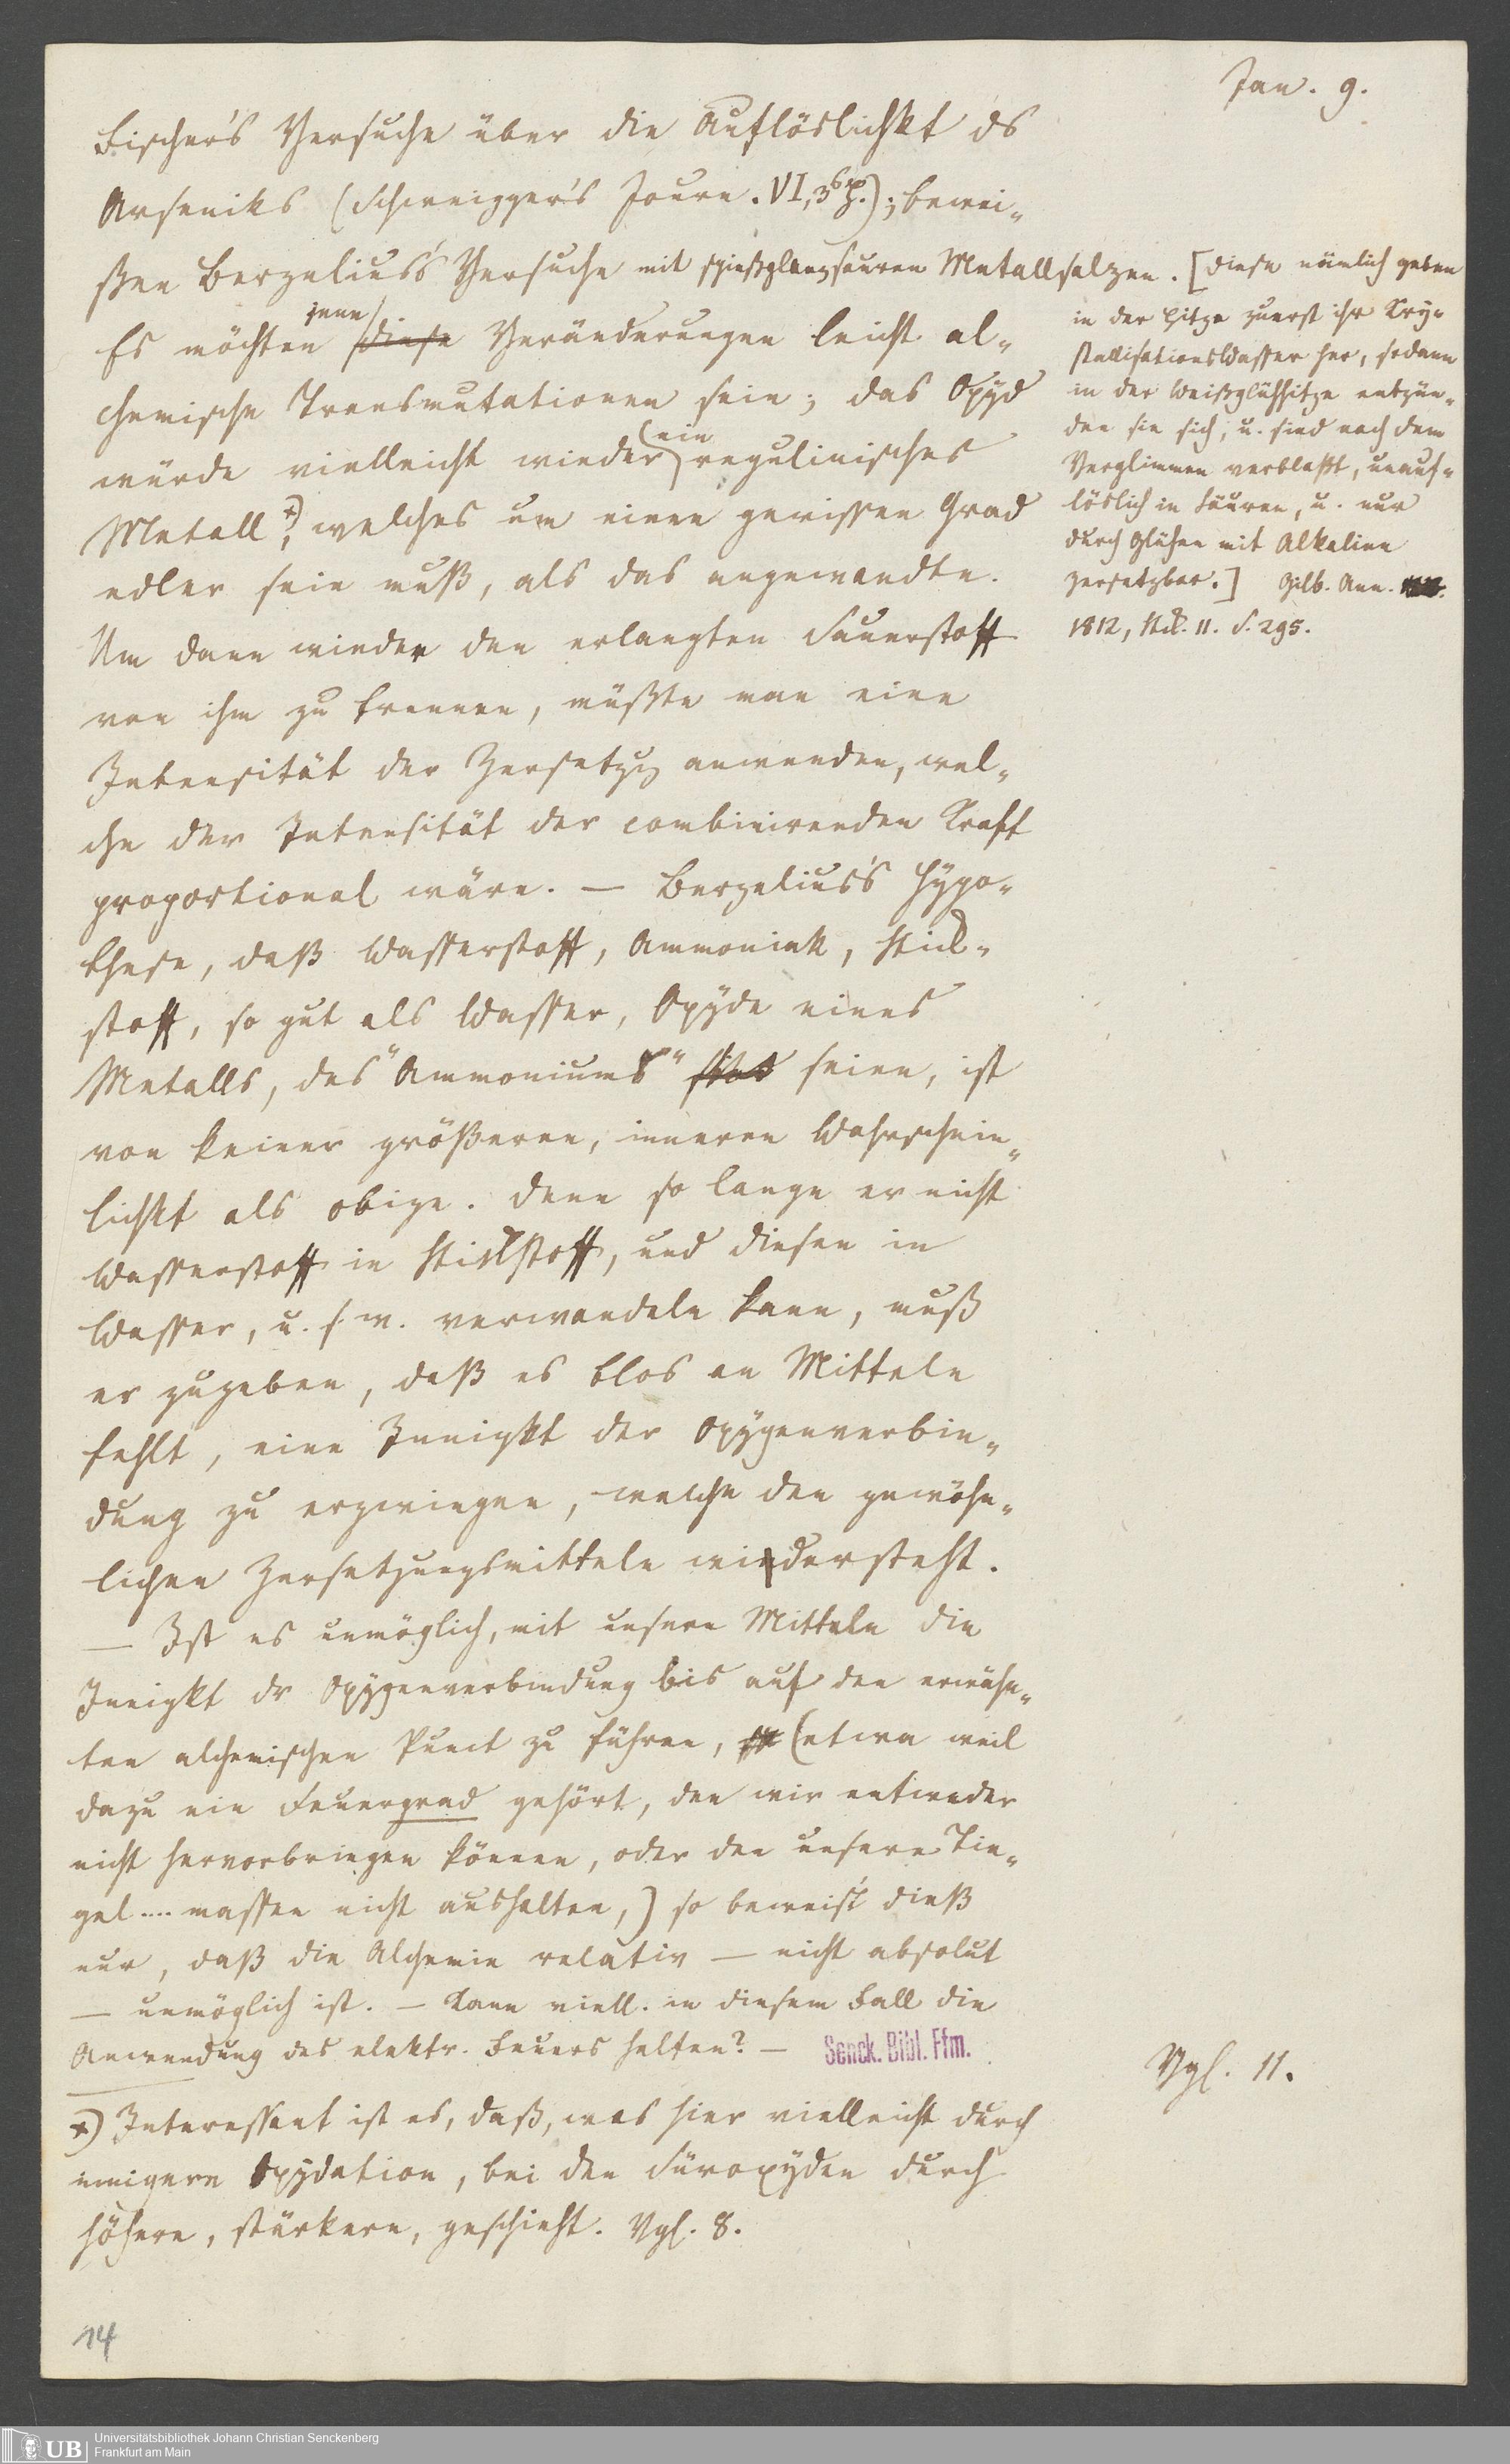 Jan. 9.
Fischer's Versuche über die Auflöslichkt ds
Arseniks (Schweigger's Journ. VI, 3 ); bewei-
ßen Berzelius's Versuche mit spießglanzsauren Metallsalzen. [Diese nämlich geben
in der Hitze zuerst ihr Kry-
stallisationswasser her, sodann
in der Weißglühhitze entzün-
den sie sich, u. sind nach dem
Verglimmen verblaßt, unauf-
löslich in Säuren, u. nur
durch Glühen mit Alkalien
zersetzbar.] Gilb. Ann.
1812, Stck. 11. S. 295.
Es möchten jene diese Veränderungen leicht al-
chemische Transmutationen sein; das Oxyd
würde vielleicht wieder ein regulinisches
Metall*), welches um einen gewissen Grad
edler sein muß, als das angewandte.
Um dann wieder den erlangten Sauerstoff
von ihm zu trennen, müßte man eine
Intensität der Zersetzg anwenden, wel-
che der Intensität der combinirenden Kraft
proportional wäre. — Berzelius's Hypo-
these, daß Wasserstoff, Ammoniak, Stick-
stoff, so gut als Wasser, Oxyde eines
Metalls, des "Ammoniums" seien, ist
von keiner größeren, inneren Wahrschein-
lichkt als obige. Denn so lange er nicht
Wasserstoff in Stickstoff, und diesen in
Wasser, u. s. w. verwandeln kann, muß
er zugeben, daß es blos an Mitteln
fehlt, eine Innigkt der Oxygenverbin-
dung zu erzwingen, welche den gewöhn-
lichen Zersetzungsmitteln widersteht.
— Ist es unmöglich, mit unsern Mitteln die
Innigkt dr Oxygenverbindung bis auf den erwähn-
ten alchemischen Punct zu führen, (etwa weil
dazu ein Feuergrad gehört, den wir entweder
nicht hervorbringen können, oder den unsere Tie-
gel.... massen nicht aushalten,) so beweist dieß
nur, daß die Alchemie relativ — nicht absolut
— unmöglich ist. — Kann viell. in diesem Fall die
Anwendung des elektr. Feuers helfen? —
Senck. Bibl. Ffm.
Vgl. 11.
*) Interessant ist es, daß, was hier vielleicht durch
innigere Oxydation, bei den Süroxyden durch
höhere, stärkere, geschieht. Vgl. 8.
14
UB
Universitätsbibliothek Johann Christian Senckenberg
Frankfurt am Main